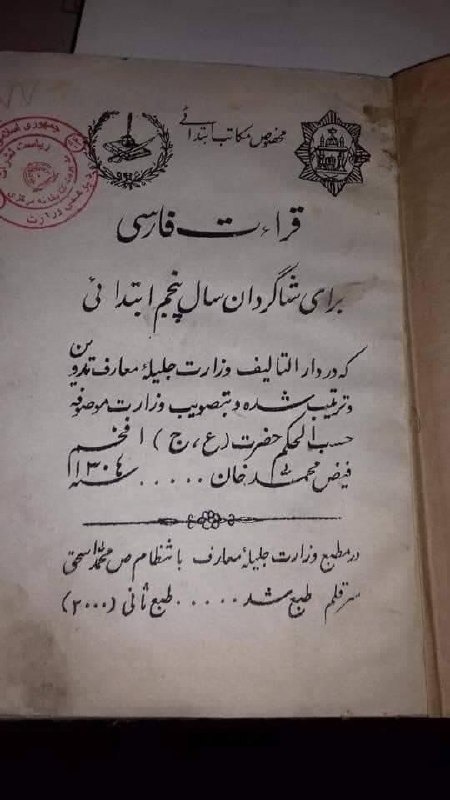 مخصوص مکاتب ابتدائی
قراءت فارسی
برای شاگردان سال پنجم ابتدائی
که در دار التالیف وزارت جلیلهٔ معارف تدوین
و ترتیب شده و بتصویب وزارت موصوفه
حسب الحکم حضرت (ع، ج) افخم
فیض محمد خان ..... سنه ۱۳۰٤
در مطبع وزارت جلیلهٔ معارف با نتظام ص محمد اسحق
سر قلم طبع شد ..... طبع ثانی (۲۰۰۰)
جمهوری
ریاست